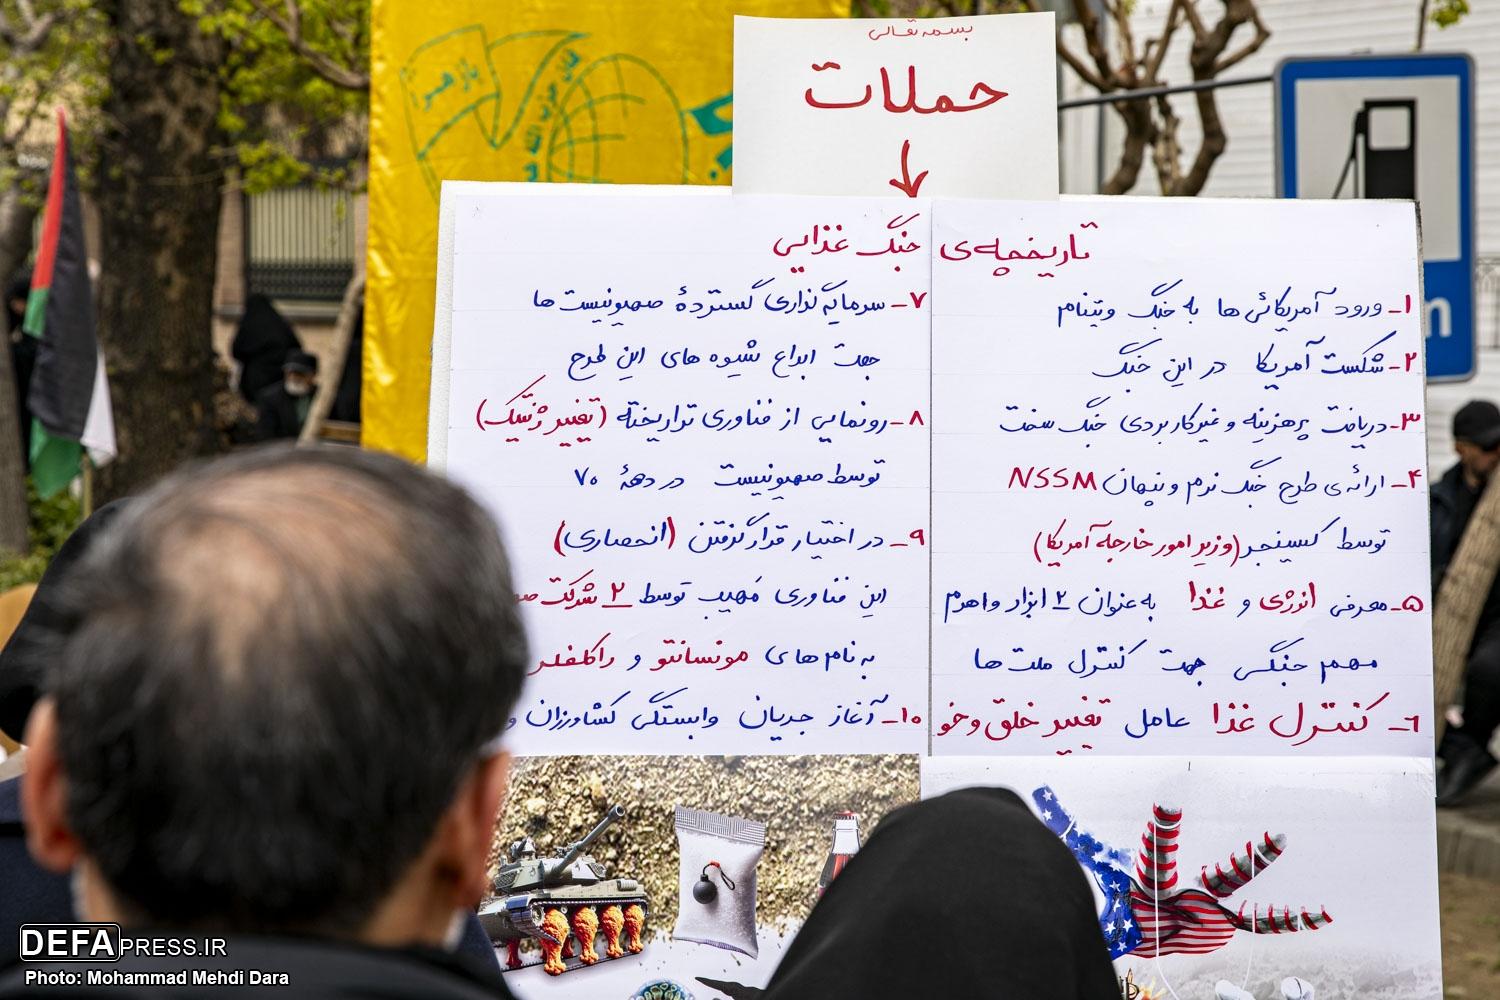 بسمه تعالی
حملات
تاریخچه‌ی جنگ غذایی
۱- ورود آمریکائی ها به جنگ ویتنام
۲- شکست آمریکا در این جنگ
۳- دریافت پرهزینه و غیرکاربردی جنگ سخت
۴- ارائه‌ی طرح جنگ نرم و پنهان NSSM
توسط کسینجر (وزیر امور خارجه آمریکا)
۵- معرفی انرژی و غذا به عنوان ۲ ابزار و اهرم
مهم جنگی جهت کنترل ملت ها
۶- کنترل غذا عامل تغییر خلق و خو
۷- سرمایه گذاری گستردهٔ صهیونیست ها
جهت ابداع شیوه های این طرح
۸- رونمایی از فناوری تراریخته (تغییر ژنتیک)
توسط صهیونیست در دههٔ ۷۰
۹- در اختیار قرار گرفتن (انحصاری)
این فناوری مهیب توسط ۲ شرکت
به نام های مونسانتو و راکفلر
۱۰- آغاز جریان وابستگی کشاورزان و
DEFAPRESS.IR
Photo: Mohammad Mehdi Dara